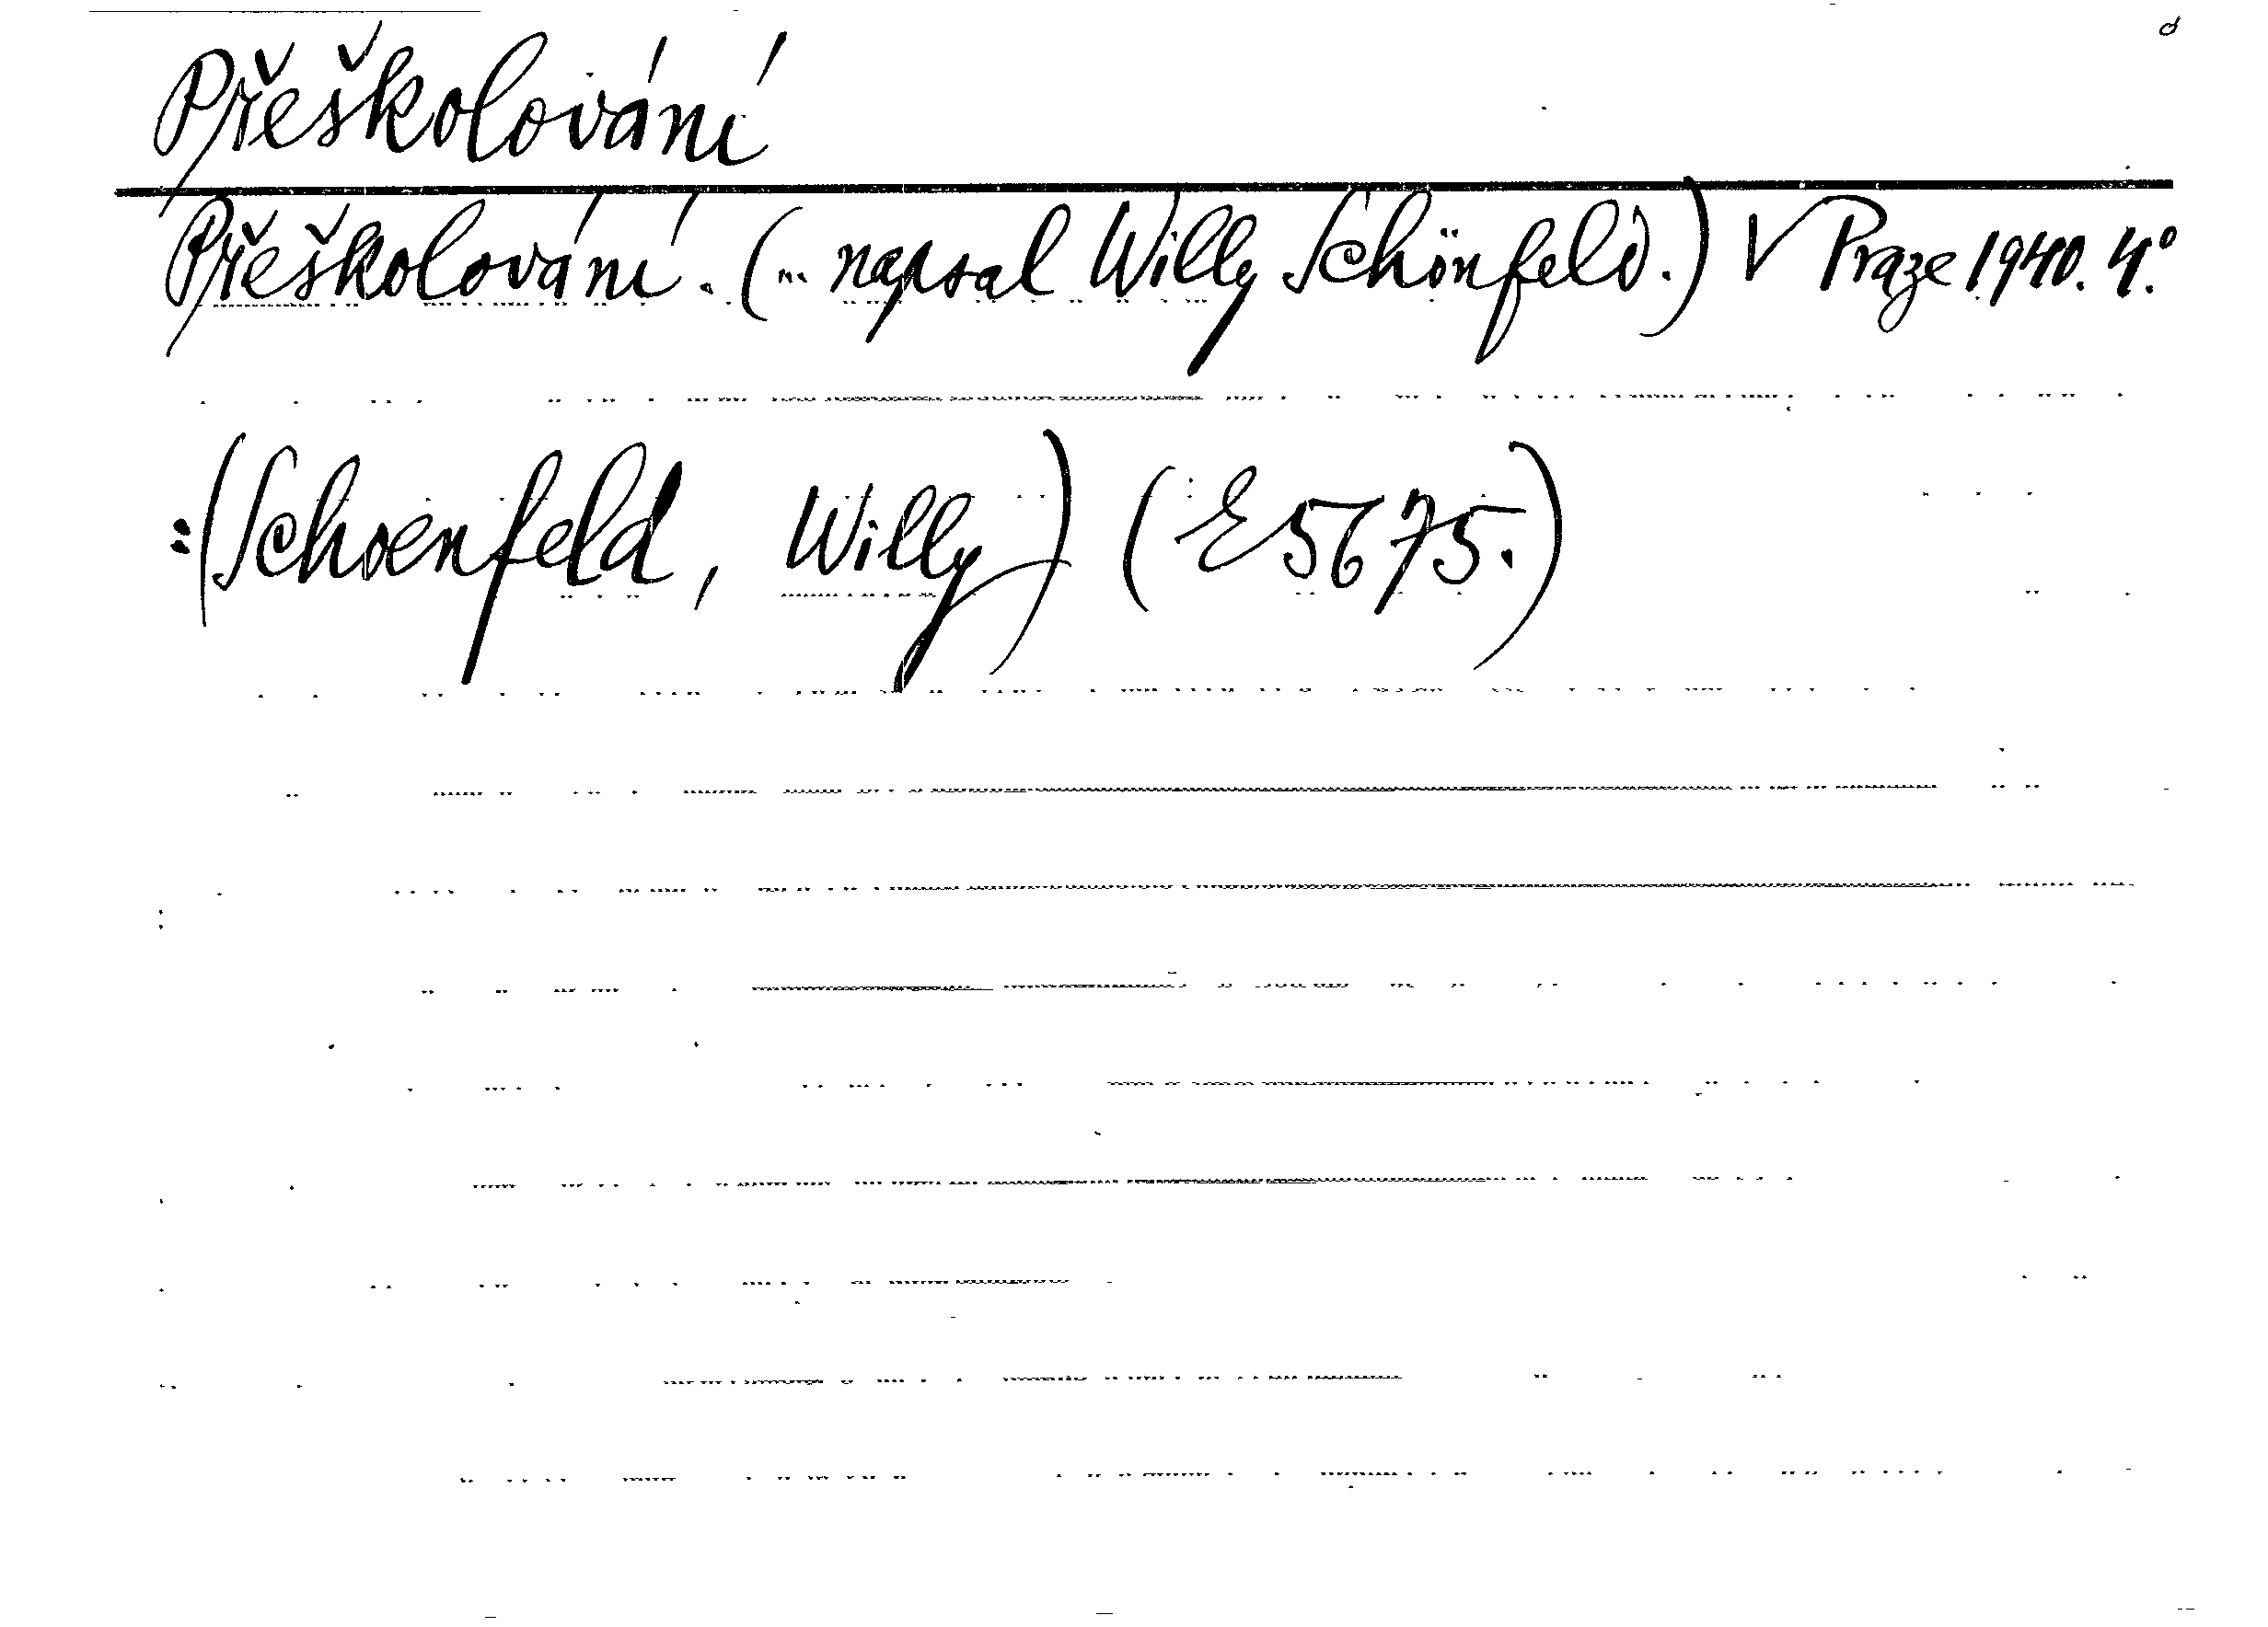 Přeškolování
Přeškolování. (... napsal Willy Schönfeld.) V Praze 1940. 4.°
:(Schoenfeld, Willy) (E 5675.)